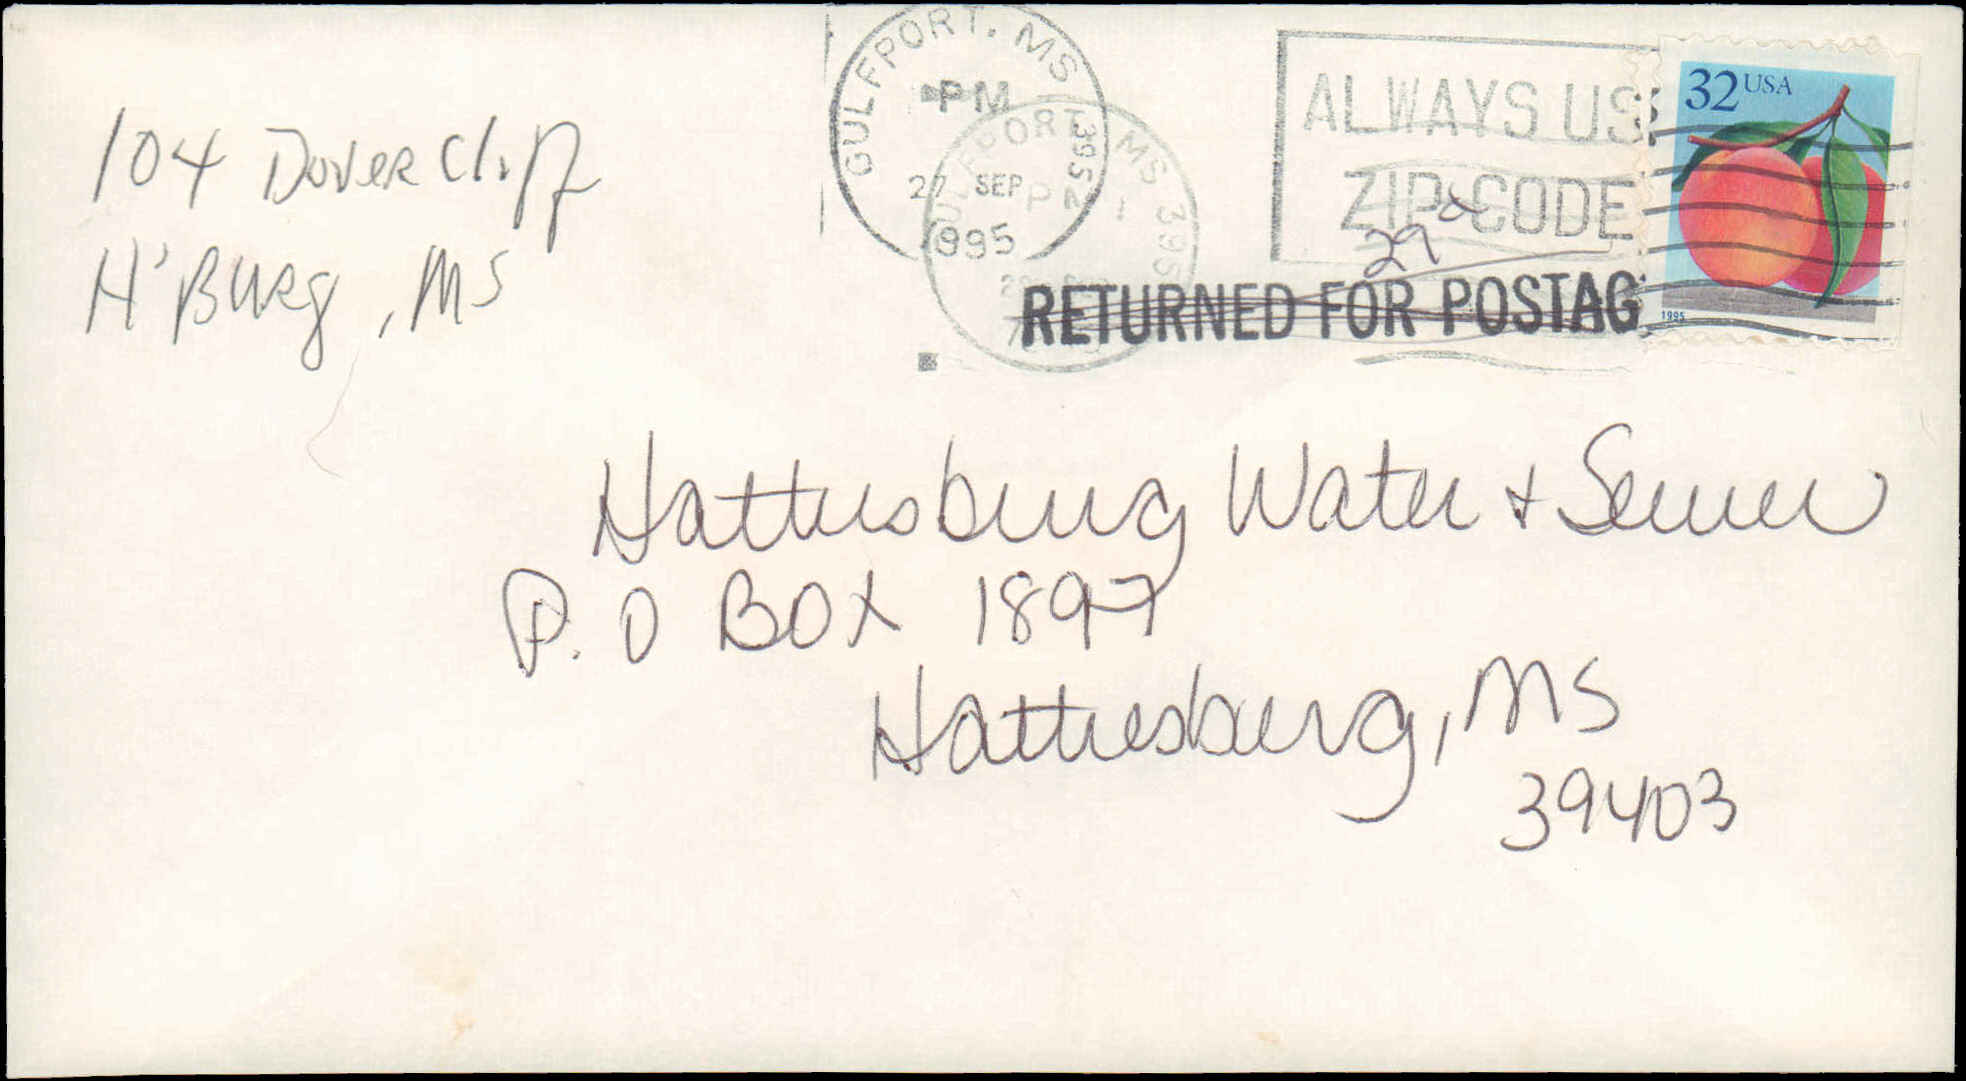 104 Dover Cliff
H'Burg, MS
GULFPORT, MS 3952
PM
27 SEP
1995
GULFPORT MS 395
P
ALWAYS US
ZIP CODE
29
RETURNED FOR POSTAG
32 USA
1995
Hattiesburg Water + Sewer
P.O BOX 1897
Hattiesburg, MS
39403